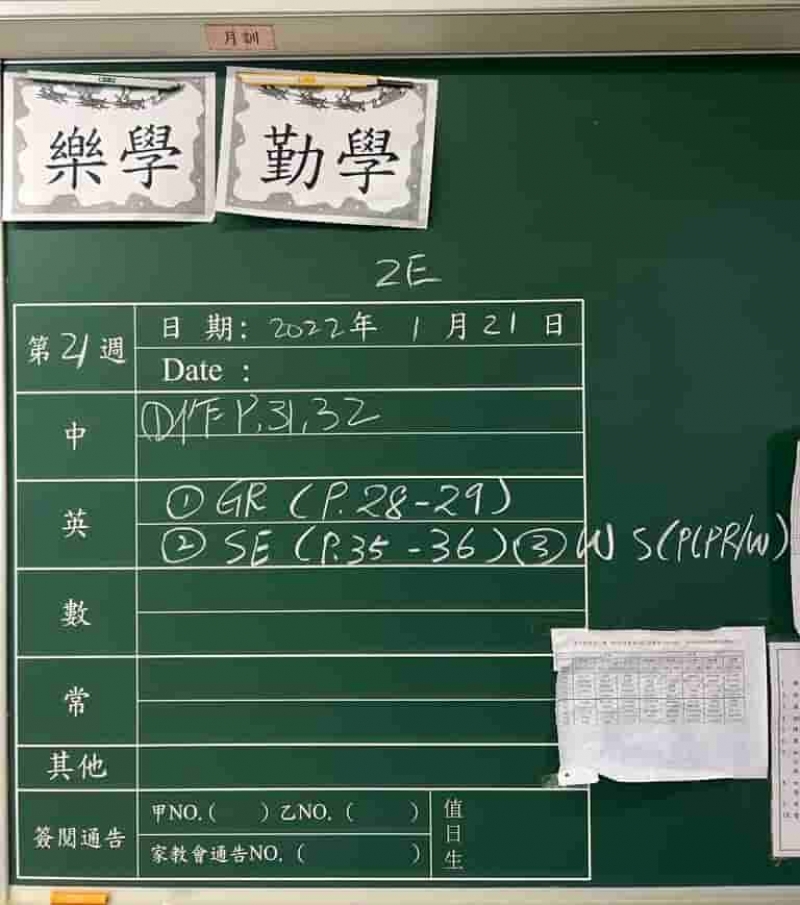 月訓
樂學
勤學
2E
第21週
日 期: 2022年 1月21日
Date :
中
P.31,32
英
① GR (P.28-29)
② SE (P.35-36) ③ WS(P(PR/W)
數
常
其他
簽閱通告
甲NO.( ) 乙NO.( )
家教會通告NO.( )
值日生